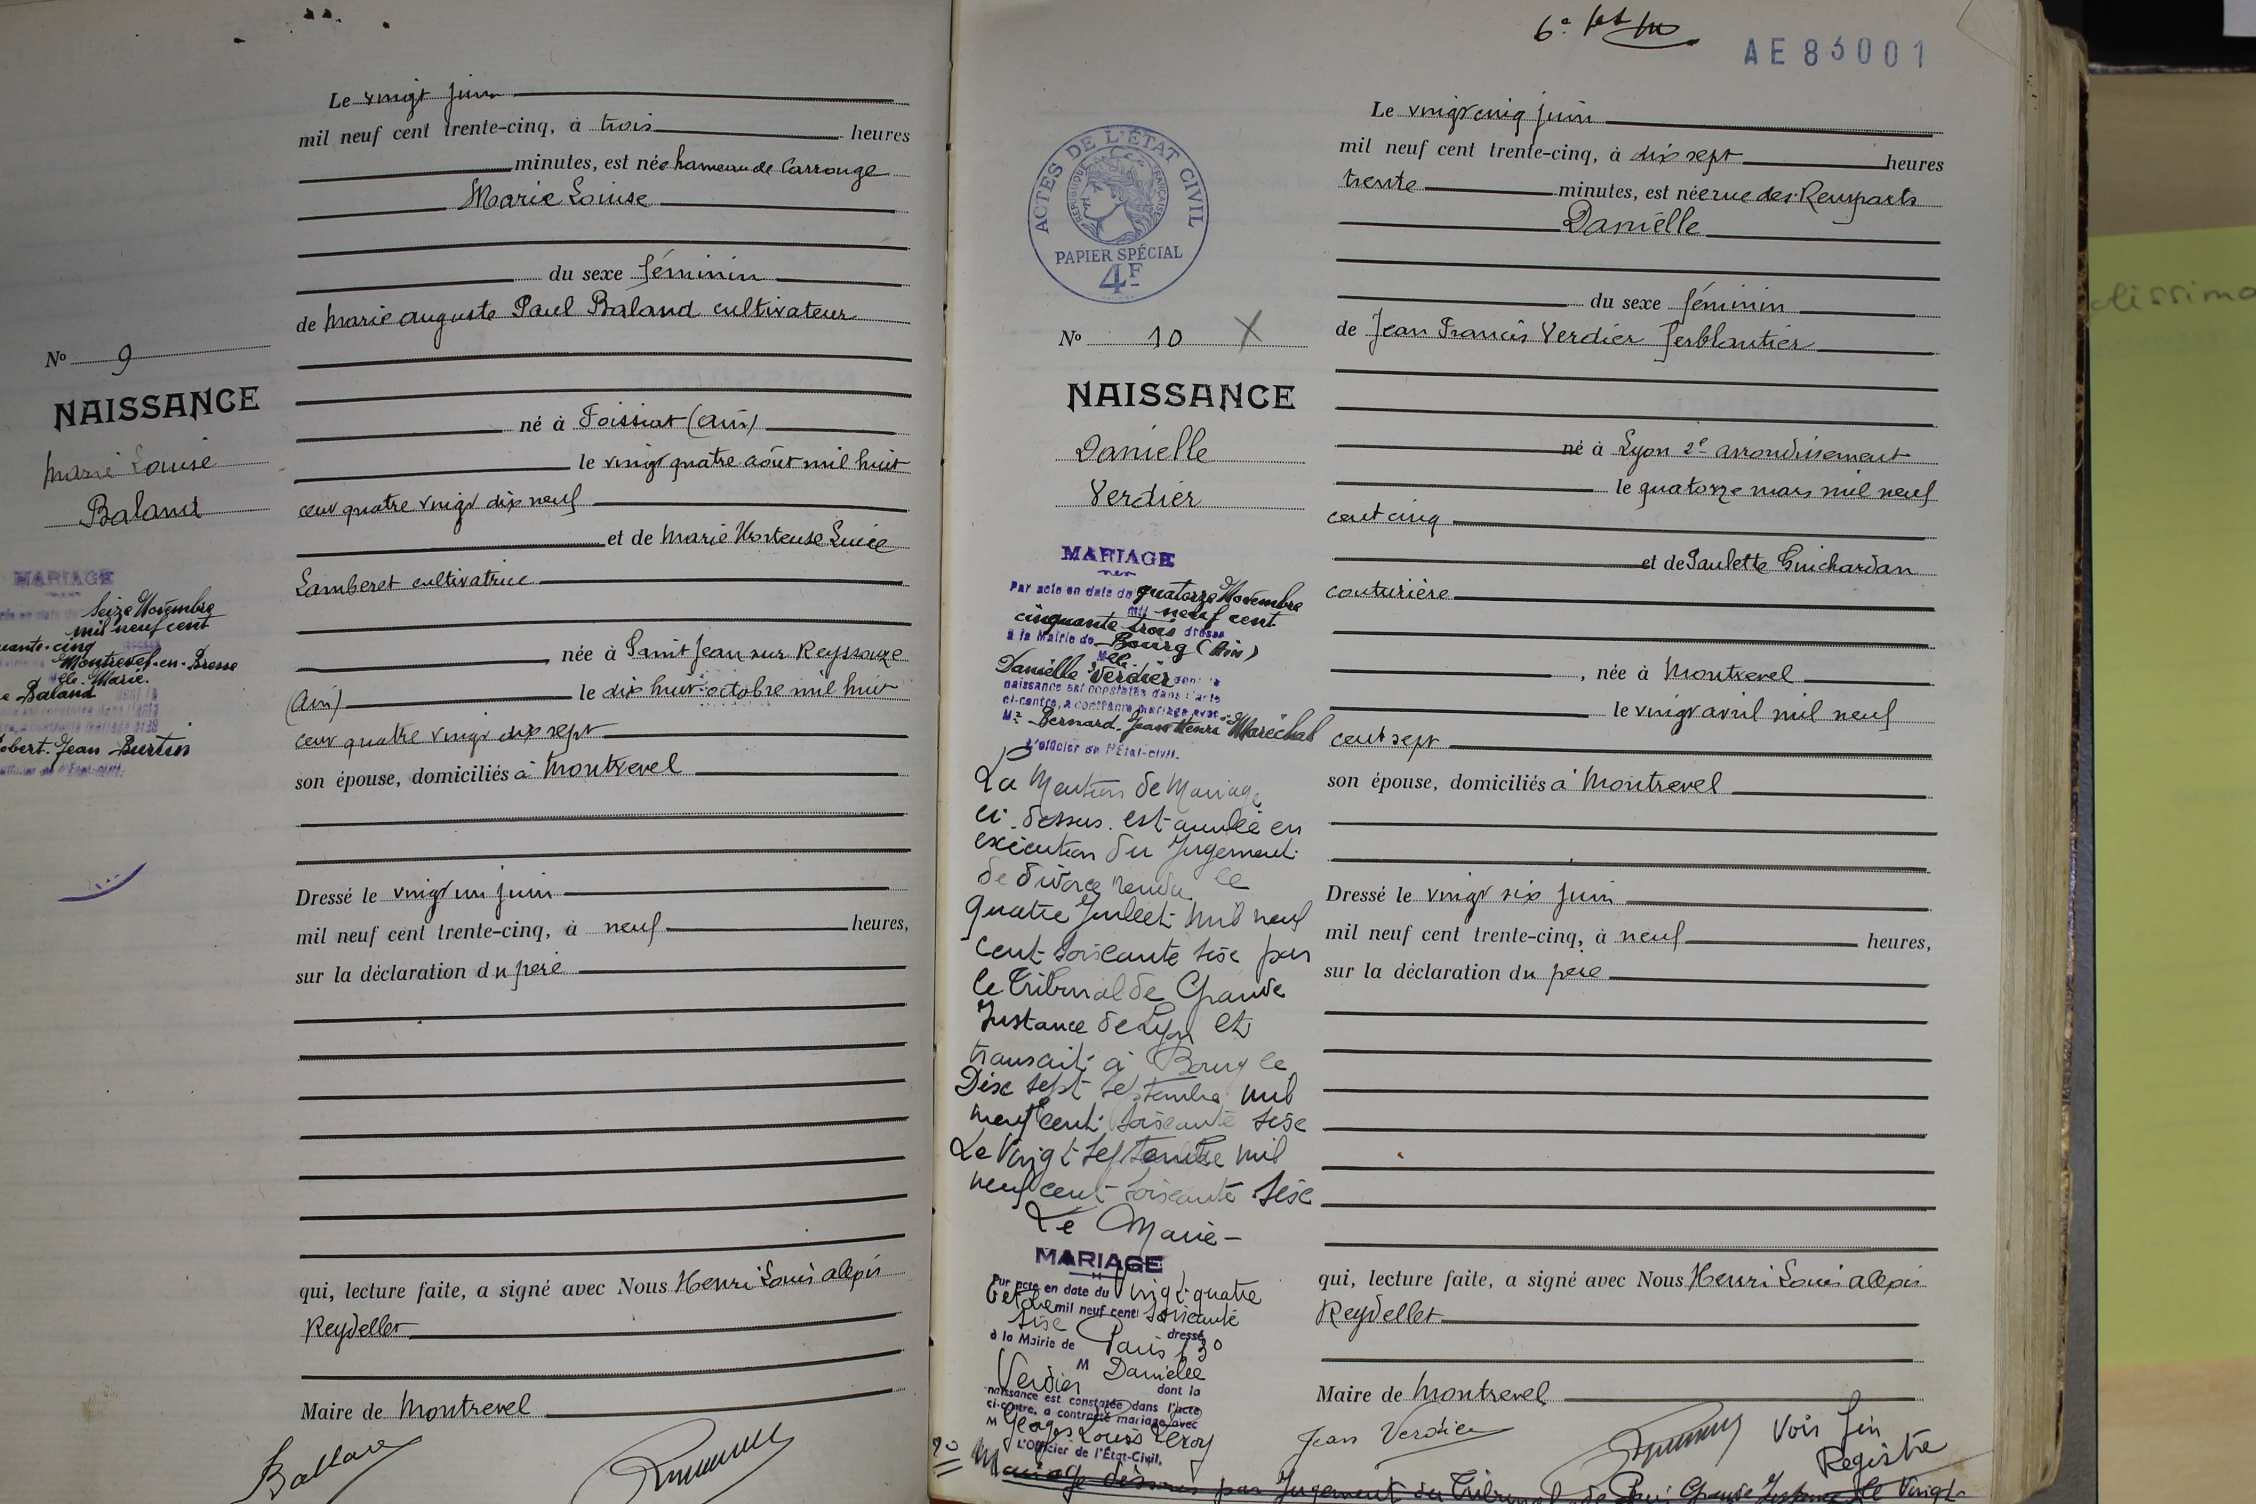 Le vingt juin
mil neuf cent trente-cinq, à trois heures
minutes, est née hameau de Carrouge
Marie Louise
du sexe féminin
de Marie Auguste Paul Baland cultivateur
N° 9
NAISSANCE
Marie Louise
Baland
né à Foissiat (Ain)
le vingt quatre août mil huit
cent quatre vingt dix neuf
et de Marie Hortense Lucie
Lamberet cultivatrice
née à Saint Jean sur Reyssouze
(Ain) le dix huit octobre mil huit
cent quatre vingt dix sept
son épouse, domiciliés à Montrevel
MARIAGE
Seize Novembre
mil neuf cent
cinq
Montrevel-en-Bresse
Elle Marie
Baland
Robert Jean Burtin
Dressé le vingt un juin
mil neuf cent trente-cinq, à neuf heures,
sur la déclaration du père
qui, lecture faite, a signé avec Nous Henri Louis Alexis
Reydellet
Maire de Montrevel
6e
AE83001
ACTES DE L'ÉTAT CIVIL
RÉPUBLIQUE FRANÇAISE
PAPIER SPÉCIAL
4F
N° 10 X
NAISSANCE
Danielle
Verdier
Le vingt cinq juin
mil neuf cent trente-cinq, à dix sept heures
trente minutes, est née rue des Remparts
Danielle
du sexe féminin
de Jean Francis Verdier ferblantier
né à Lyon 2e arrondissement
le quatorze mars mil neuf
cent cinq
et de Paulette Guichardan
couturière
née à Montrevel
le vingt avril mil neuf
cent sept
son épouse, domiciliés à Montrevel
Dressé le vingt six juin
mil neuf cent trente-cinq, à neuf heures,
sur la déclaration du père
qui, lecture faite, a signé avec Nous Henri Louis Alexis
Reydellet
Maire de Montrevel
Jean Verdier
Voir fin
Registre
MARIAGE
Par acte en date du quatorze Novembre
mil neuf cent
cinquante trois dressé
à la Mairie de Bourg (Ain)
Elle
Danielle Verdier dont la
naissance est constatée dans l'acte
ci-contre, a contracté mariage avec
Mr Bernard Jean Henri Maréchal
L'Officier de l'État-civil.
La Mention de Mariage
ci-dessus est annulée en
exécution du Jugement
de divorce rendu le
quatre Juillet mil neuf
cent soixante sise par
le Tribunal de Grande
Instance de Lyon et
transcrit à Bourg le
Dix sept septembre mil
neuf cent soixante sise
Le Vingt Septembre mil
neuf cent soixante sise
Le Maire
MARIAGE
Par acte en date du Vingt quatre
Octobre mil neuf cent soixante
sise dressé
à la Mairie de Paris 13e
M Danielle
Verdier dont la
naissance est constatée dans l'acte
ci-contre, a contracté mariage avec
M Georges Louis Leroy
L'Officier de l'État-Civil.
Mariage dissous par Jugement du Tribunal de Grande Instance le Vingt